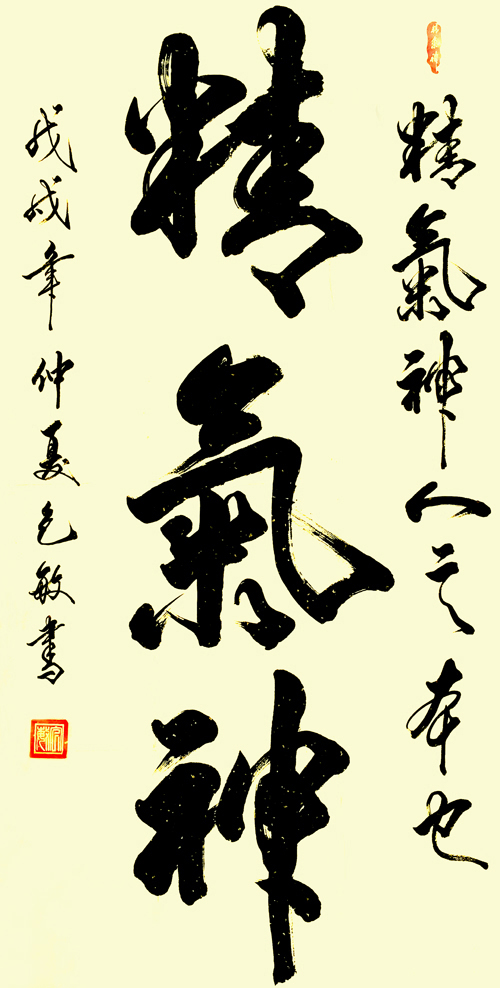 精氣神人之本也
精氣神
戊戌年仲夏敏書